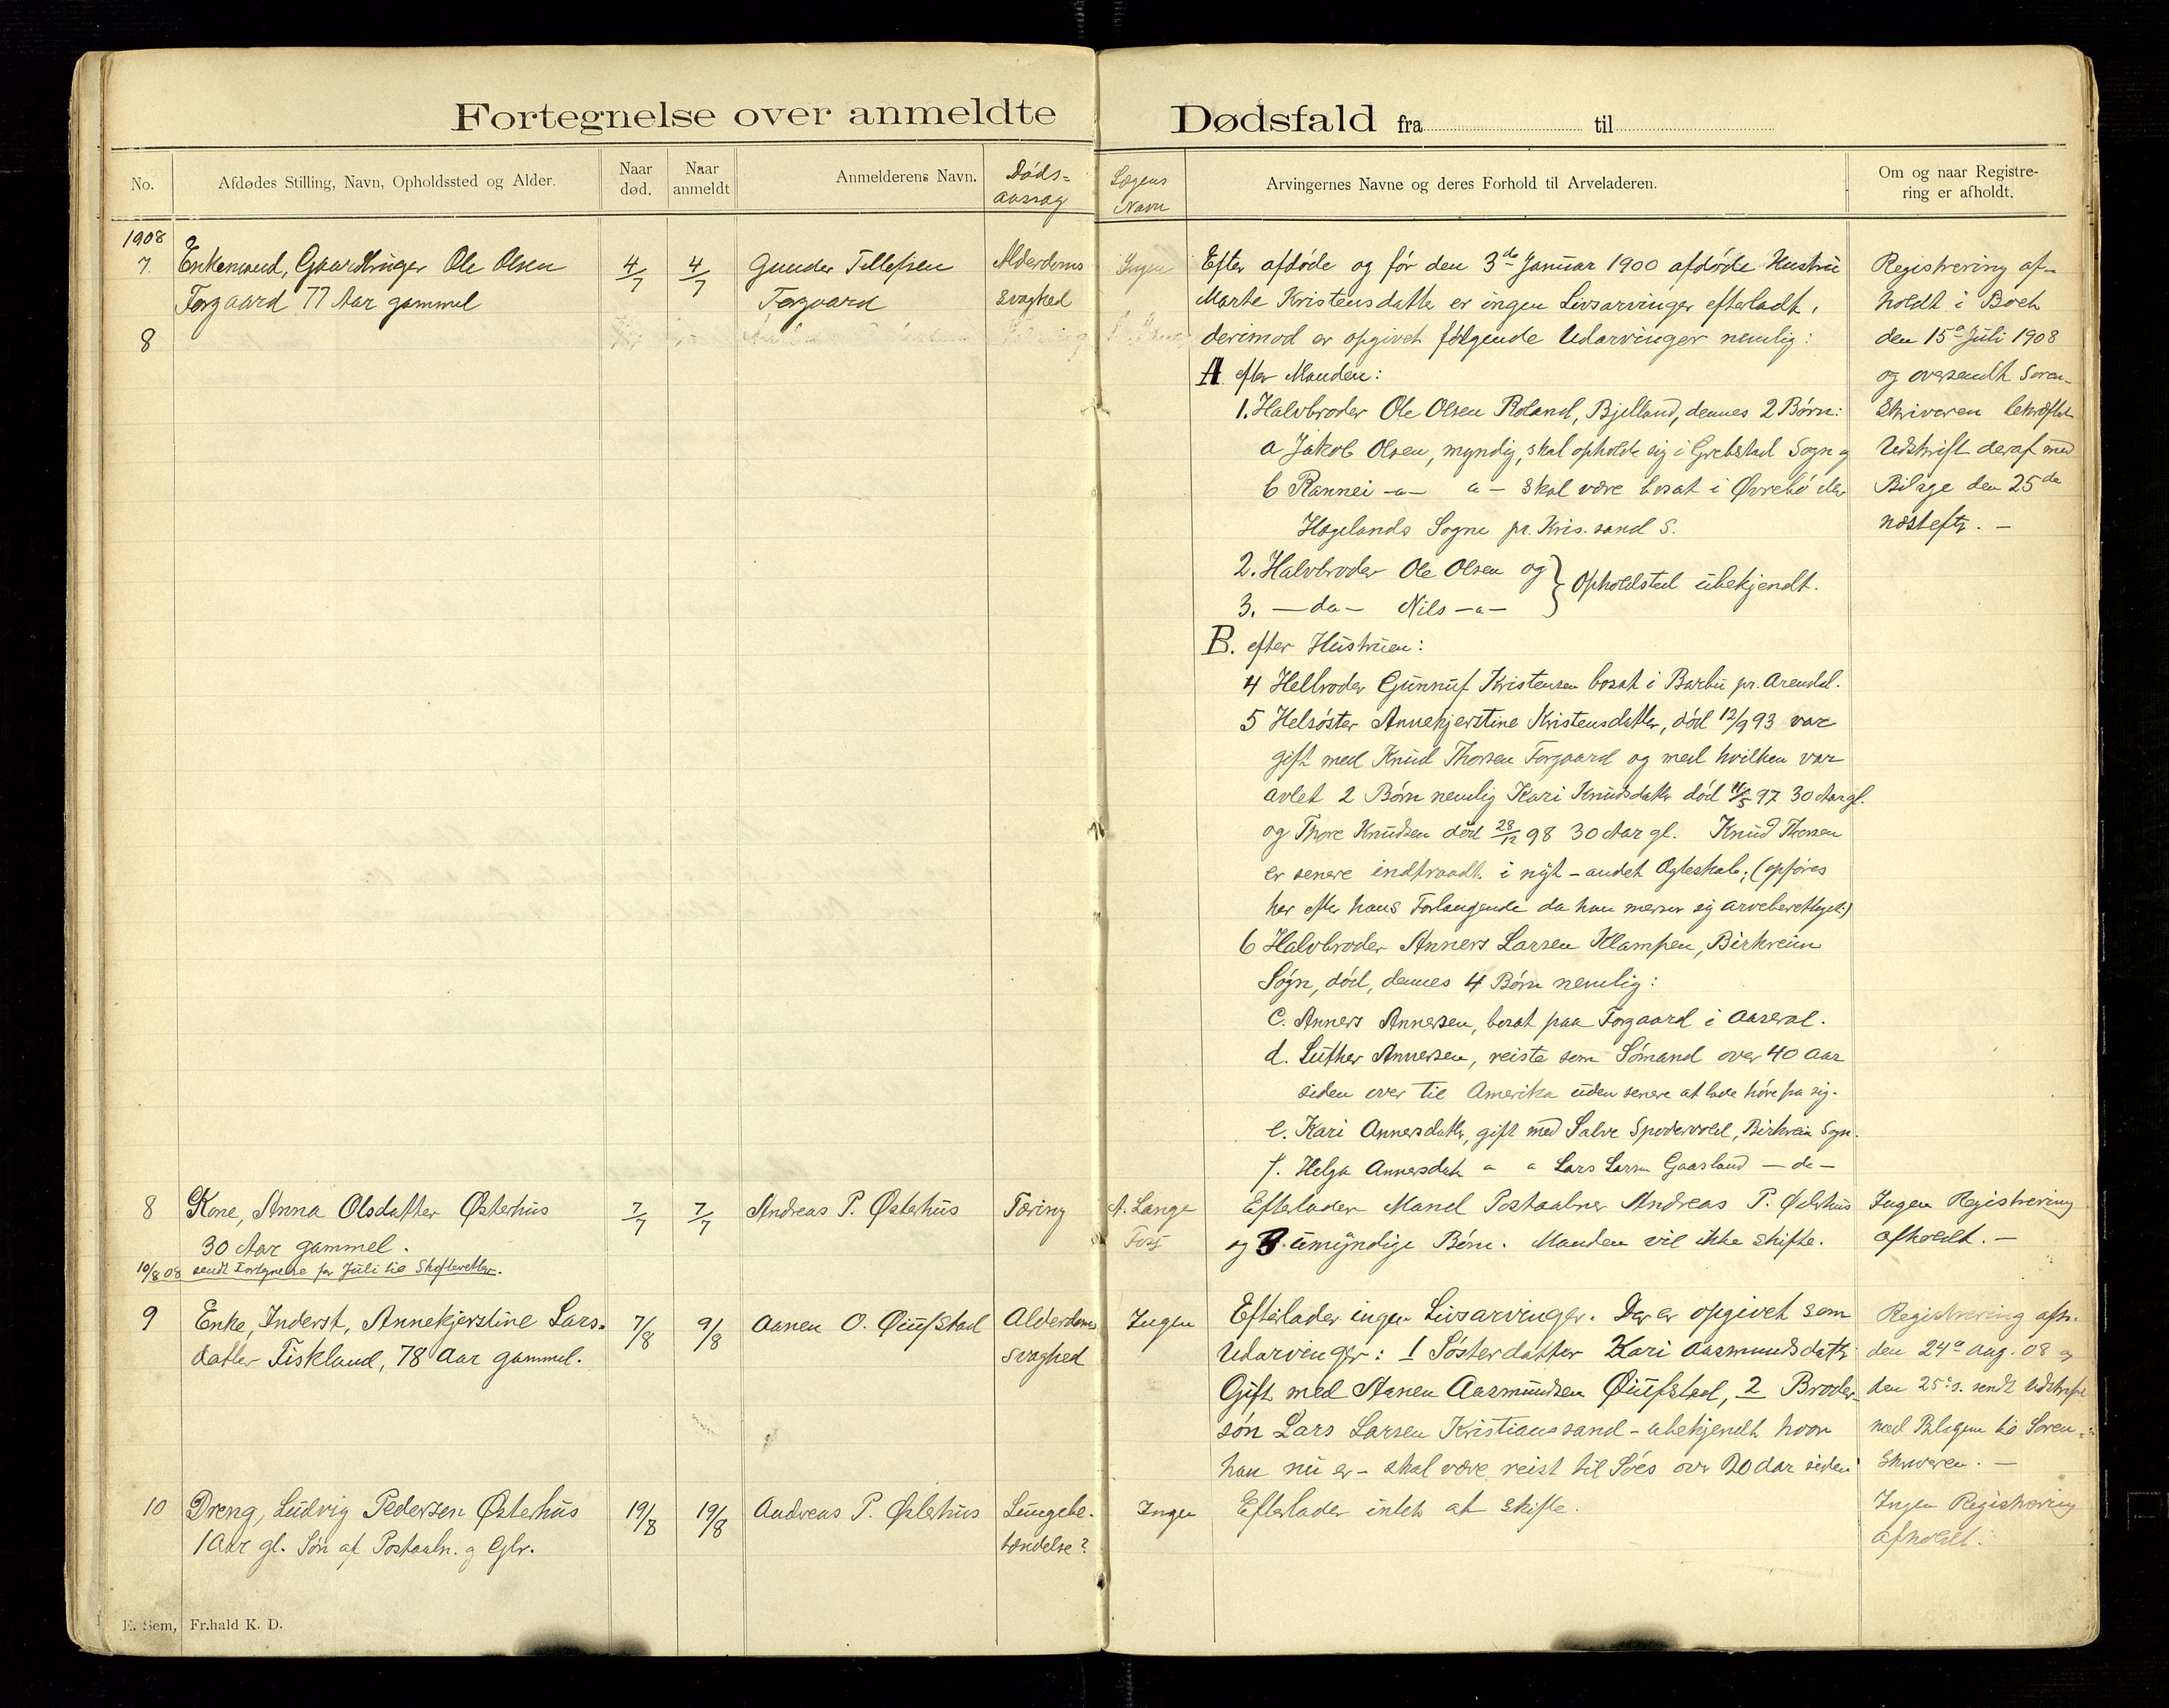 Fortegnelse over anmeldte Dødsfald fra til
No.
Afdødes Stilling, Navn, Opholdssted og Alder.
Naar død.
Naar anmeldt
Anmelderens Navn.
Døds-
aarsag
Lægens
Navn
Arvingernes Navne og deres Forhold til Arveladeren.
Om og naar Registre-
ring er afholdt.
1908
7. Enkemand, Gaardbruger Ole Olsen
Forgaard 77 Aar gammel
4/7
4/7
Gunder Tellefsen
Forgaard
Alderdoms
svaghed
Ingen
Efter afdøde og før den 3de Januar 1900 afdøde Hustru
Marte Kristensdatter er ingen Livsarvinger efterladt,
derimod er opgivet følgende Udarvinger nemlig:
A efter Manden:
1. Halvbroder Ole Olsen Roland, Bjelland, dennes 2 Børn:
a Jakob Olsen, myndig, skal opholde sig i Grebstad Sogn og
b Rannei -"- " - skal være bosat i Øvrebø eller
Hægelands Sogne pr. Kris.sand S.
2. Halvbroder Ole Olsen og } Opholdsted ubekjendt.
3. — do — Nils -"-
B. efter Hustruen:
4 Helbroder Gunnuf Kristensen bosat i Barbu pr. Arendal.
5 Helsøster Annekjerstine Kristensdatter, død 12/9 93 var
gift med Knud Thorsen Forgaard og med hvilken var
avlet 2 Børn nemlig Kari Knudsdatter død 11/5 97 30 Aar gl.
og Thore Knudsen død 28/12 98 30 Aar gl. Knud Thorsen
er senere indtraadt i nyt - andet Ægteskab; (opføres
her efter hans Forlangende da han mener sig arveberettiget)
6 Halvbroder Anners Larsen Klampen, Birkreim
Sogn, død, dennes 4 Børn nemlig:
c. Anners Annersen, bosat paa Forgaard i Aaseral.
d. Luther Annersen, reiste som Sømand over 40 Aar
siden over til Amerika uden senere at lade høre fra sig.
e. Kari Annersdatter, gift med Salve , Birkreim Sogn.
f. Helga Annersdatter " " Lars Larsen Gaasland — do —
Registrering af-
holdt i Boet
den 15de Juli 1908
og oversendt Soren-
skriveren bekræftet
Udskrift deraf med
Bilage den 25de
næstefter. —
8
8 Kone, Anna Olsdatter Østerhus
30 Aar gammel.
7/7
7/7
Andreas P. Østerhus
Tæring
A. Lange
Efterlader Mand Postaabner Andreas P. Østerhus
og 3 umyndige Børn. Manden vil ikke skifte.
Ingen Registrering
afholdt. —
10/8 08 sendt Fortegnelse for Juli til Skifteretten.
9 Enke, Inderst, Annekjerstine Lars-
datter Fiskland, 78 Aar gammel.
7/8
9/8
Aanen O. Øiufstad
Alderdoms
svaghed
Ingen
Efterlader ingen Livsarvinger. Der er opgivet som
Udarvinger: 1 Søsterdatter Kari Aasmundsdatter
Gift med Aanen Aasmundsen Øiufstad, 2 Broder-
søn Lars Larsen Kristianssand - ubekjendt hvor
han nu er - skal være reist til Søes over 20 Aar siden
Registrering afh.
den 24de Aug. 08 og
den 25de s. sendt Udskrift
med Bilagene til Soren-
skriveren. —
10 Dreng, Ludvig Pedersen Østerhus
1 Aar gl. Søn af Postaabn. og Gbr.
19/8
19/8
Andreas P. Østerhus
Lungebe-
tændelse?
Ingen
Efterlader intet at skifte.
Ingen Registrering
afholdt.
E. Sem, Fr.hald K. D.